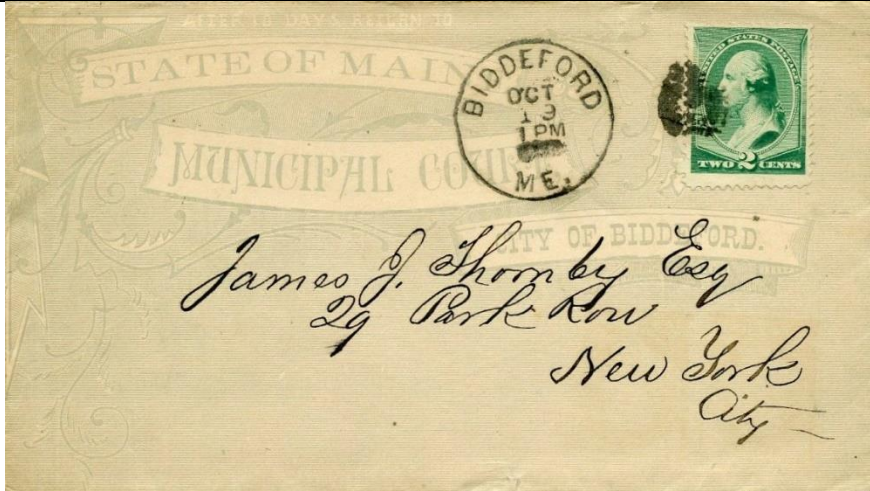 AFTER 10 DAYS, RETURN TO
STATE OF MAIN
MUNICIPAL COUR
CITY OF BIDDEFORD.
BIDDEFORD
OCT
19
1 PM
ME.
UNITED STATES POSTAGE
TWO 2 CENTS
James J. Thornby Esq
29 Park Row
New York
City